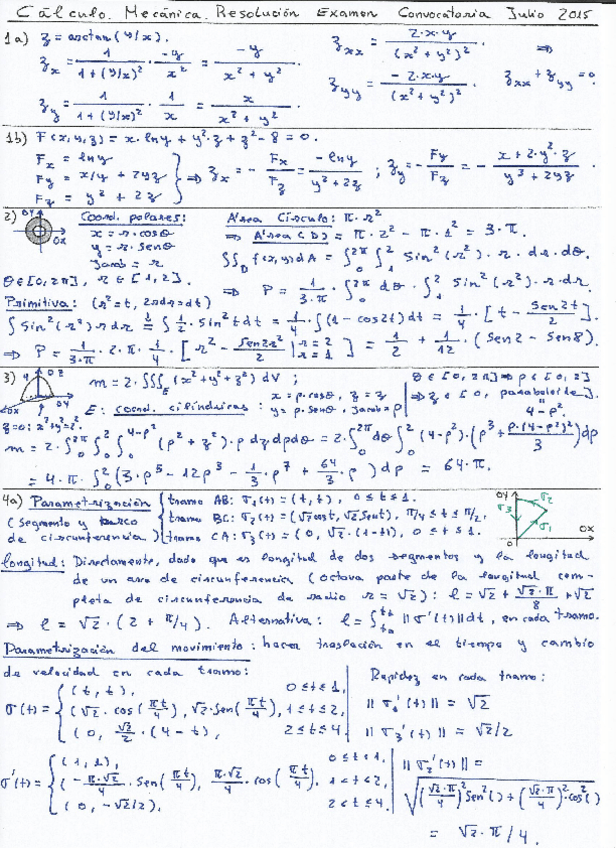 Cálculo. Mecánica. Resolución Examen Convocatoria Julio 2015
1a) z = arctan(y/x).
z_x = 1/(1+(y/x)²) · -y/x² = -y/(x²+y²)
z_y = 1/(1+(y/x)²) · 1/x = x/(x²+y²)
z_xx = 2·x·y/(x²+y²)² ⇒
z_yy = -2·x·y/(x²+y²)² z_xx + z_yy = 0.
1b) F(x,y,z) = x·lny + y²·z + z² - 8 = 0.
F_x = lny
F_y = x/y + 2yz
F_z = y² + 2z
⇒ z_x = - F_x/F_z = -lny/(y²+2z) ; z_y = - F_y/F_z = - (x+2·y²·z)/(y³+2yz).
2) OY OX
Coord. polares:
x = r·cosθ
y = r·senθ
Jacob = r
θ∈[0,2π], r∈[1,2].
Área Círculo: π·r²
⇒ Área(D) = π·2² - π·1² = 3·π.
∫∫_D f(x,y)dA = ∫_0^2π ∫_1^2 sin²(r²)·r·dr·dθ.
⇒ P = 1/(3·π) · ∫_0^2π dθ · ∫_1^2 sin²(r²)·r·dr.
Primitiva: (r²=t, 2rdr=dt)
∫sin²(r²)rdr = ∫ 1/2·sin²t dt = 1/4·∫(1-cos2t)dt = 1/4·[t - sen2t/2].
⇒ P = 1/(3·π)·2·π·1/4·[r² - sen2r²/2 | r=2 r=1] = 1/2 + 1/12·(sen2 - sen8).
3) 4 OZ OX OY
m = 2·∫∫∫_E (x²+y²+z²) dV ;
E: coord. cilíndricas: x=ρ·cosθ, z=z y=ρ·senθ, Jacob=ρ
θ∈[0,2π] ⇒ ρ∈[0,2]
⇒ z∈[0, paraboloide].
4-ρ².
z=0: x²+y²=2².
m = 2·∫_0^2π ∫_0^2 ∫_0^4-ρ² (ρ²+z²)·ρ dzdρdθ = 2·∫_0^2π dθ·∫_0^2 (4-ρ²)·(ρ³ + ρ·(4-ρ²)²/3) dρ
= 4·π·∫_0^2 (3·ρ⁵ - 12ρ³ - 1/3·ρ⁷ + 64/3·ρ) dρ = 64·π.
4a) Parametrización
(segmento y arco
de circunferencia)
tramo AB: σ₁(t) = (t,t), 0≤t≤1.
tramo BC: σ₂(t) = (√2cost, √2sent), π/4≤t≤π/2.
tramo CA: σ₃(t) = (0, √2·(1-t)), 0≤t≤1.
OY σ₂ σ₃ σ₁ 0 OX
Longitud: Directamente, dado que es longitud de dos segmentos y la longitud
de un arco de circunferencia (octava parte de la longitud com-
pleta de circunferencia de radio r=√2): l = √2 + √2·π/8 + √2
⇒ l = √2·(2+π/4). Alternativa: l = ∫ ||σ'(t)||dt, en cada tramo.
Parametrización del movimiento: hacer traslación en el tiempo y cambio
de velocidad en cada tramo:
σ(t) =
(t,t), 0≤t≤1,
(√2·cos(πt/4), √2·sen(πt/4)), 1≤t≤2,
(0, √2/2·(4-t)), 2≤t≤4
Rapidez en cada tramo:
||σ₁'(t)|| = √2
||σ₃'(t)|| = √2/2
σ'(t) =
(1,1), 0≤t≤1,
(-π·√2/4·sen(πt/4), π·√2/4·cos(πt/4)), 1<t<2,
(0, -√2/2), 2<t≤4.
||σ₂'(t)|| =
√((√2·π/4)²sen²() + (√2·π/4)²·cos²())
= √2·π/4.